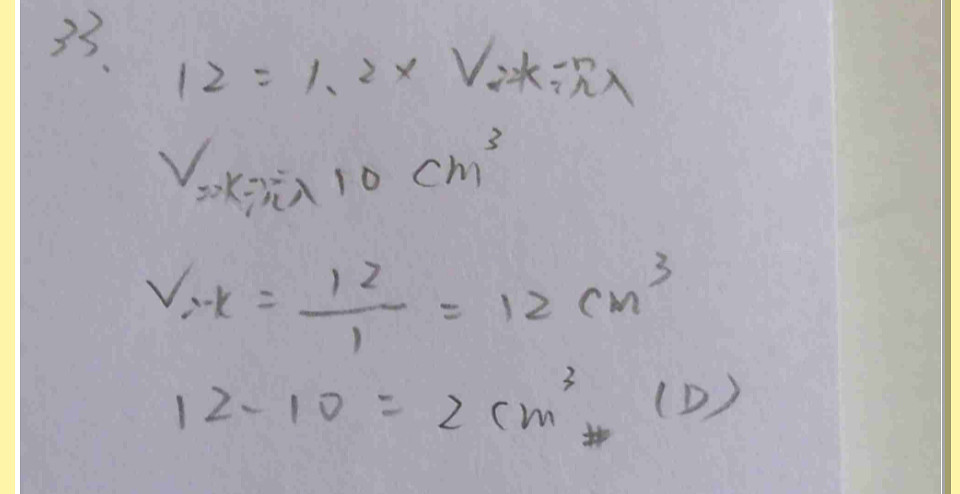 33.
12 = 1.2 × V冰沉入
V冰沉入 10 cm³
V冰 = 12/1 = 12 cm³
12 - 10 = 2 cm³ # (D)